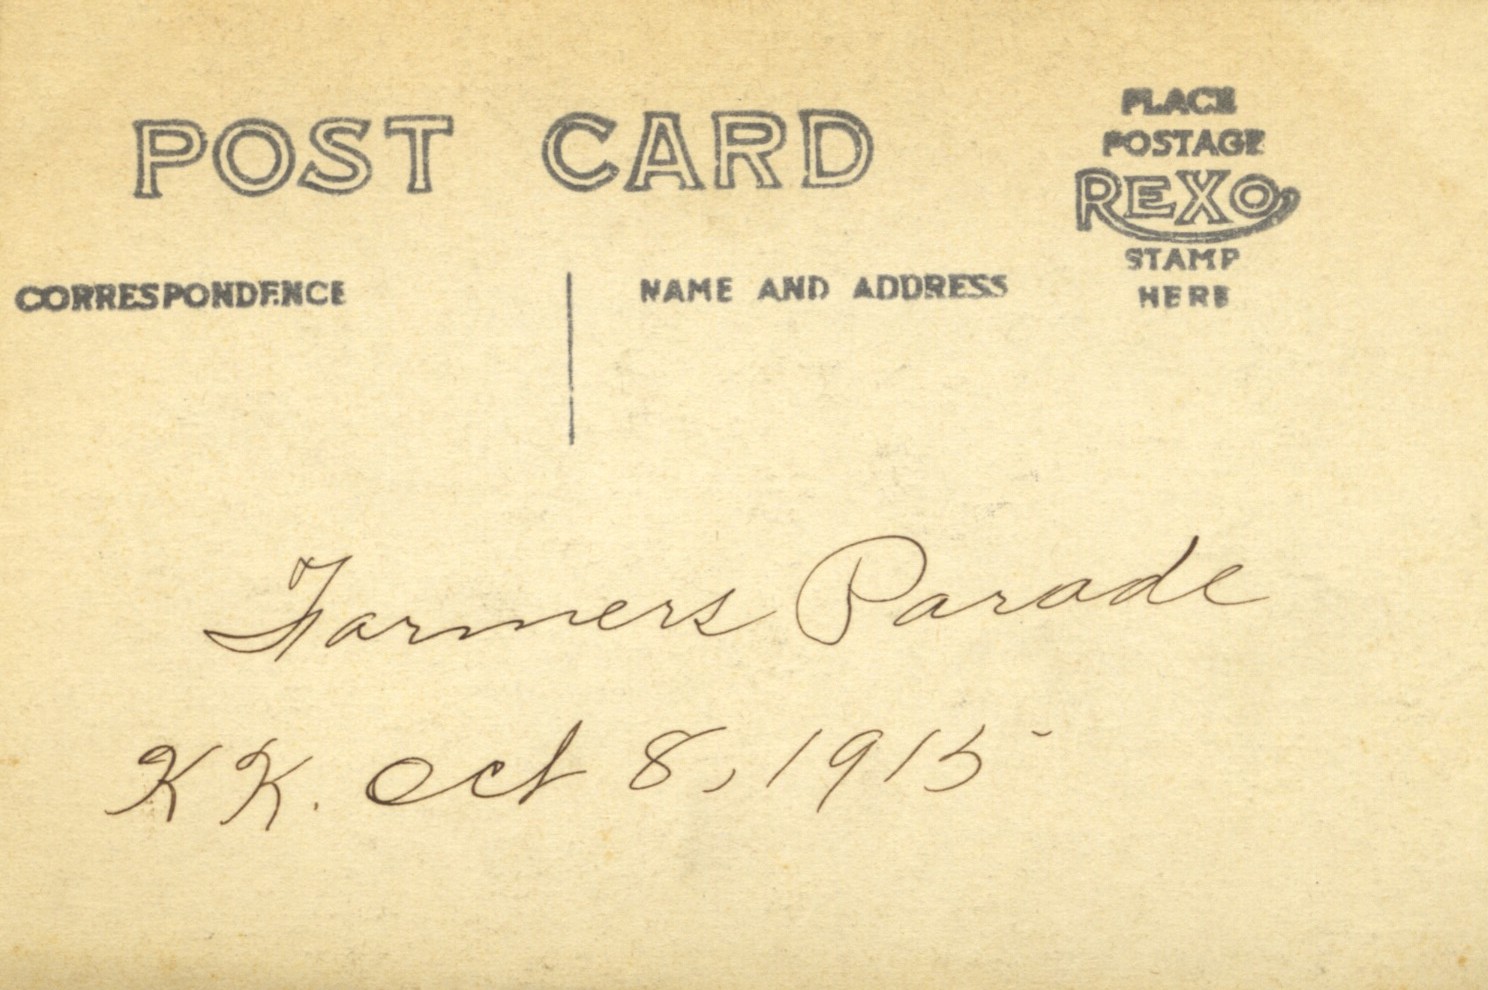 POST CARD
PLACE
POSTAGE
REXO
STAMP
HERE
CORRESPONDENCE
NAME AND ADDRESS
Farmers Parade
KK. Oct 8, 1915